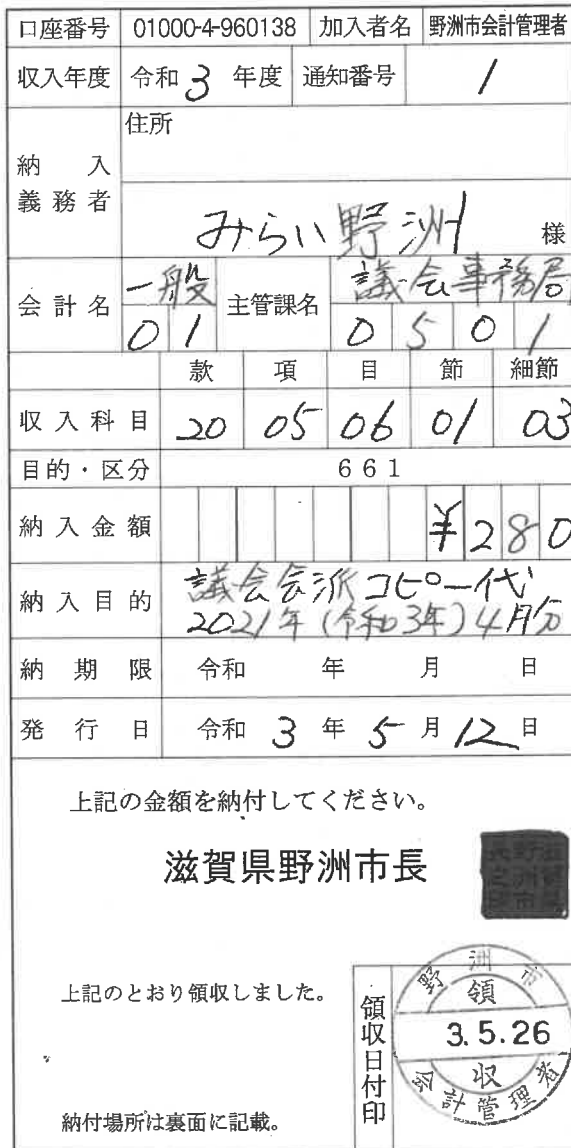 口座番号 01000-4-960138 加入者名 野洲市会計管理者
収入年度 令和 3 年度 通知番号 1
住所
納入義務者
みらい野洲 様
会計名 一般 主管課名 議会事務局
01 0501
款 項 目 節 細節
収入科目 20 05 06 01 03
目的・区分 661
納入金額 ¥280
納入目的 議会会派コピー代
2021年(令和3年)4月分
納期限 令和 年 月 日
発行日 令和 3 年 5 月 12 日
上記の金額を納付してください。
滋賀県野洲市長
上記のとおり領収しました。
領収日付印
野洲市
領
3.5.26
収
会計管理者
納付場所は裏面に記載。